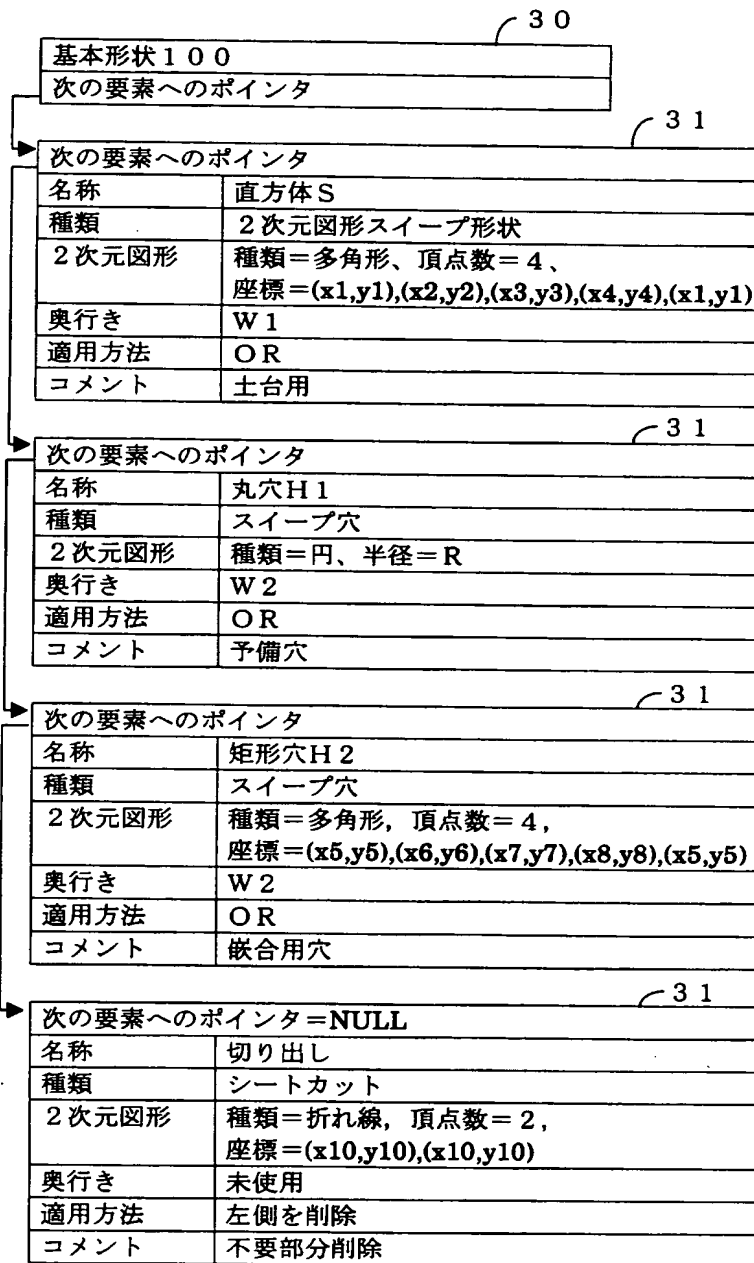 30
基本形状100
次の要素へのポインタ
31
次の要素へのポインタ
名称 直方体S
種類 2次元図形スイープ形状
2次元図形 種類=多角形、頂点数=4、
座標=(x1,y1),(x2,y2),(x3,y3),(x4,y4),(x1,y1)
奥行き W1
適用方法 OR
コメント 土台用
31
次の要素へのポインタ
名称 丸穴H1
種類 スイープ穴
2次元図形 種類=円、半径=R
奥行き W2
適用方法 OR
コメント 予備穴
31
次の要素へのポインタ
名称 矩形穴H2
種類 スイープ穴
2次元図形 種類=多角形, 頂点数=4,
座標=(x5,y5),(x6,y6),(x7,y7),(x8,y8),(x5,y5)
奥行き W2
適用方法 OR
コメント 嵌合用穴
31
次の要素へのポインタ=NULL
名称 切り出し
種類 シートカット
2次元図形 種類=折れ線, 頂点数=2,
座標=(x10,y10),(x10,y10)
奥行き 未使用
適用方法 左側を削除
コメント 不要部分削除